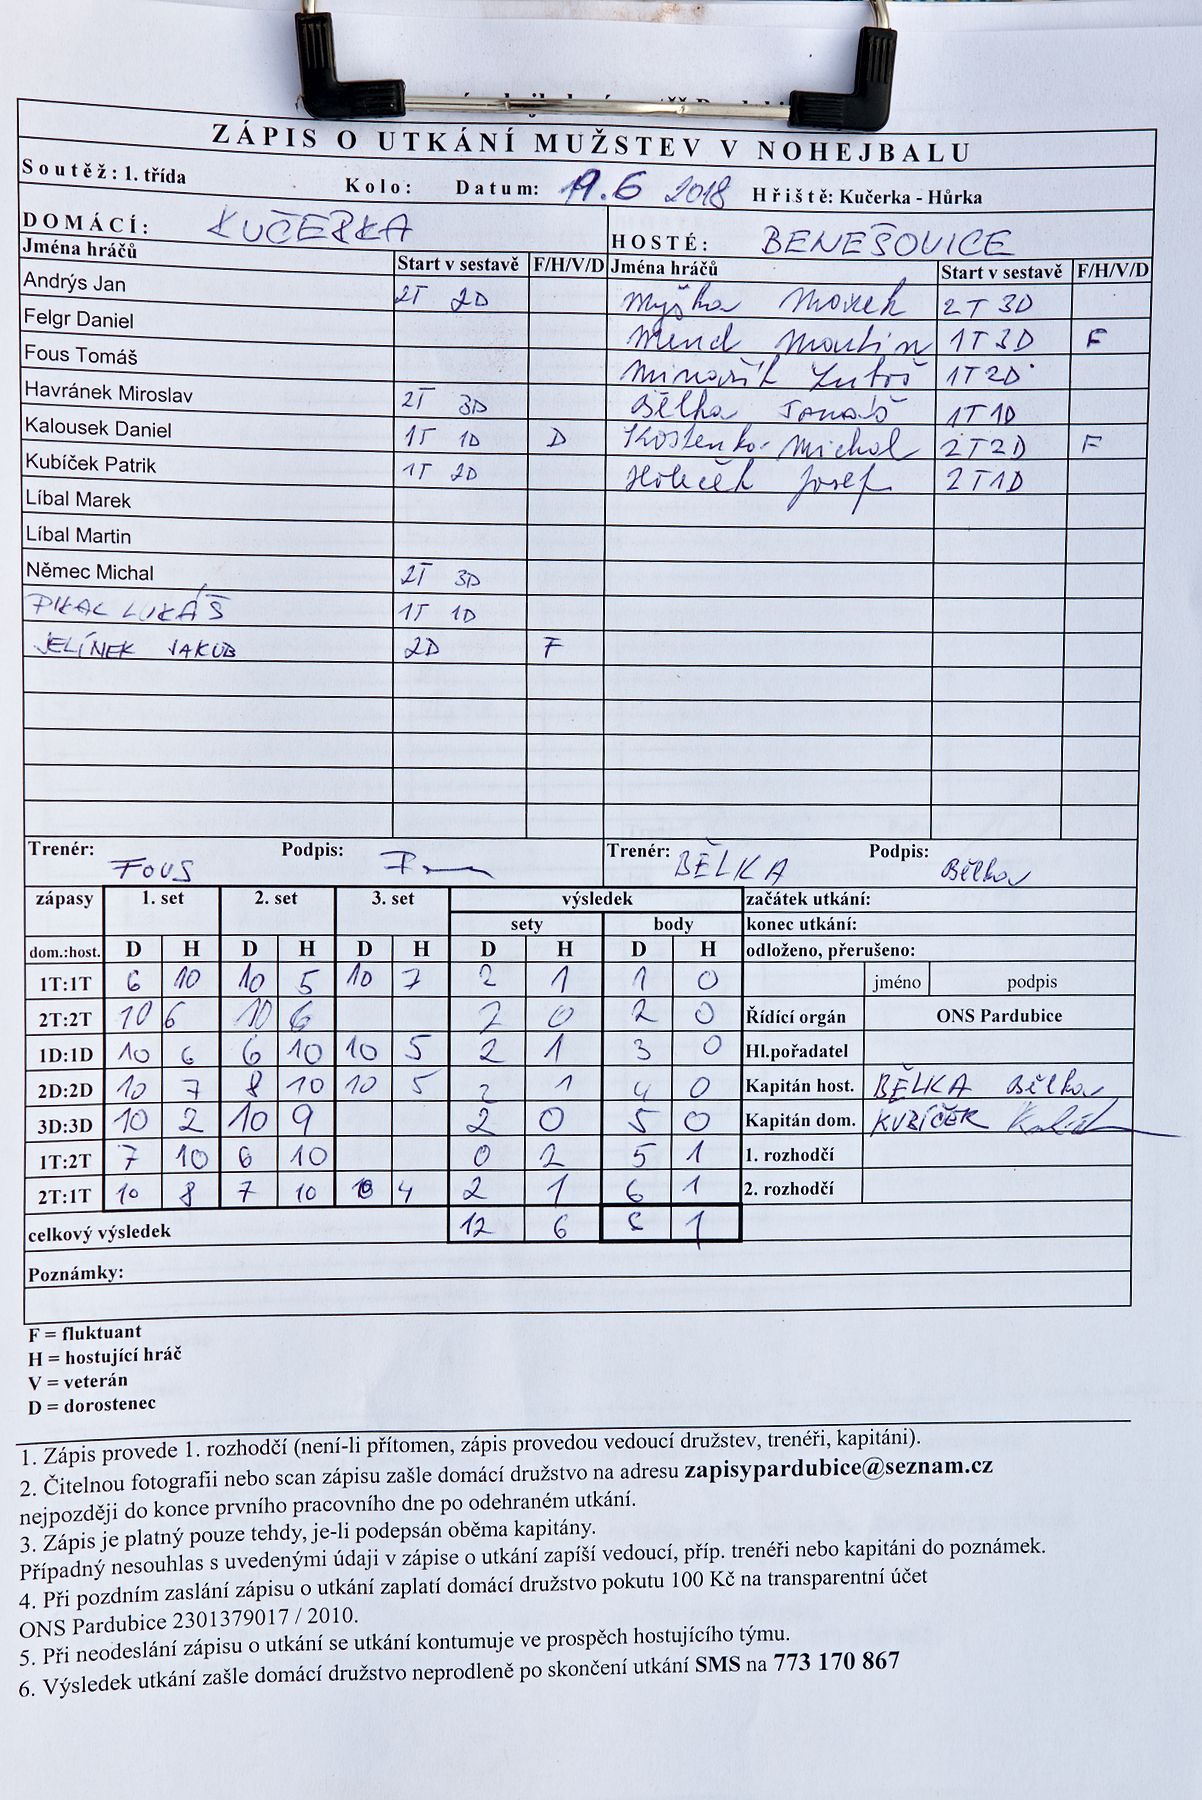 ZÁPIS O UTKÁNÍ MUŽSTEV V NOHEJBALU
Soutěž: 1. třída Kolo: Datum: 19.6 2018 Hřiště: Kučerka - Hůrka
DOMÁCÍ: KUČERKA HOSTÉ: BENEŠOVICE
Jména hráčů Start v sestavě F/H/V/D Jména hráčů Start v sestavě F/H/V/D
Andrýs Jan 2T 2D Myška Marek 2T 3D
Felgr Daniel Mend Martin 1T 3D F
Fous Tomáš Minařík Luboš 1T 2D
Havránek Miroslav 2T 3D Bělka Tomáš 1T 1D
Kalousek Daniel 1T 1D D Kostenko Michal 2T 2D F
Kubíček Patrik 1T 2D Holeček Josef 2T 1D
Líbal Marek
Líbal Martin
Němec Michal 2T 3D
PIKAL LUKÁŠ 1T 1D
JELÍNEK JAKUB 2D F
Trenér: FOUS Podpis: Trenér: BĚLKA Podpis: Bělka
zápasy 1. set 2. set 3. set výsledek začátek utkání:
sety body konec utkání:
dom.:host. D H D H D H D H D H odloženo, přerušeno:
1T:1T 6 10 10 5 10 7 2 1 1 0 jméno podpis
2T:2T 10 6 10 6 2 0 2 0 Řídící orgán ONS Pardubice
1D:1D 10 6 6 10 10 5 2 1 3 0 Hl.pořadatel
2D:2D 10 7 8 10 10 5 2 1 4 0 Kapitán host. BĚLKA Bělka
3D:3D 10 2 10 9 2 0 5 0 Kapitán dom. KUBÍČEK
1T:2T 7 10 6 10 0 2 5 1 1. rozhodčí
2T:1T 10 8 7 10 10 4 2 1 6 1 2. rozhodčí
celkový výsledek 12 6 6 1
Poznámky:
F = fluktuant
H = hostující hráč
V = veterán
D = dorostenec
1. Zápis provede 1. rozhodčí (není-li přítomen, zápis provedou vedoucí družstev, trenéři, kapitáni).
2. Čitelnou fotografii nebo scan zápisu zašle domácí družstvo na adresu zapisypardubice@seznam.cz
nejpozději do konce prvního pracovního dne po odehraném utkání.
3. Zápis je platný pouze tehdy, je-li podepsán oběma kapitány.
Případný nesouhlas s uvedenými údaji v zápise o utkání zapíší vedoucí, příp. trenéři nebo kapitáni do poznámek.
4. Při pozdním zaslání zápisu o utkání zaplatí domácí družstvo pokutu 100 Kč na transparentní účet
ONS Pardubice 2301379017 / 2010.
5. Při neodeslání zápisu o utkání se utkání kontumuje ve prospěch hostujícího týmu.
6. Výsledek utkání zašle domácí družstvo neprodleně po skončení utkání SMS na 773 170 867